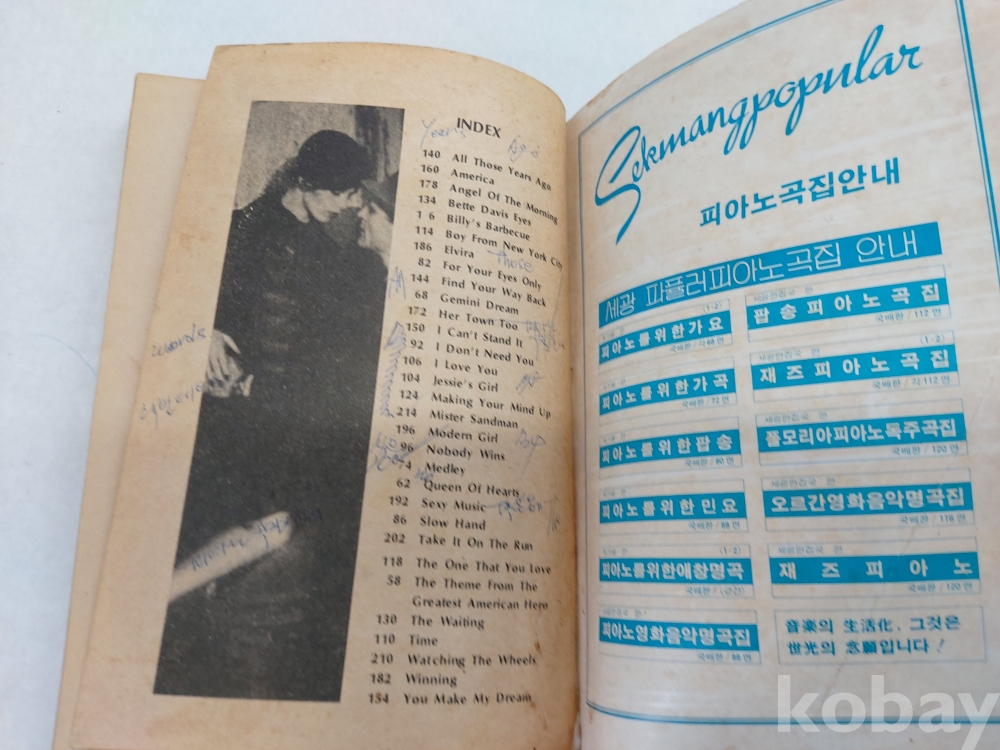 INDEX
Years
Ago
140 All Those Years Ago
160 America
178 Angel Of The Morning
134 Bette Davis Eyes
1 6 Billy's Barbecue
114 Boy From New York City
186 Elvira
Those
82 For Your Eyes Only
144 Find Your Way Back
68 Gemini Dream
172 Her Town Too
150 I Can't Stand It
92 I Don't Need You
106 I Love You
104 Jessie's Girl
124 Making Your Mind Up
214 Mister Sandman
196 Modern Girl
96 Nobody Wins
74 Medley
62 Queen Of Hearts
192 Sexy Music
86 Slow Hand
202 Take It On The Run
118 The One That You Love
58 The Theme From The
Greatest American Hero
130 The Waiting
110 Time
210 Watching The Wheels
182 Winning
154 You Make My Dream
words
Sekwangpopular
피아노곡집안내
세광 파플러피아노곡집 안내
(1·2)
피아노를위한가요
국배판/각68면
피아노를위한가곡
국배판/72면
피아노를위한팝송
국배판/80면
피아노를위한민요
국배판/88면
(1·2)
피아노를위한애창명곡
국배판/(근간)
피아노영화음악명곡집
국배판/88면
팝송피아노곡집
국배판/112면
(1·2)
재즈피아노곡집
국배판/각112면
폴모리아피아노독주곡집
국배판/120면
오르간영화음악명곡집
국배판/116면
재즈피아노
국배판/120면
音楽의 生活化, 그것은
世光의 念願입니다!
kobay